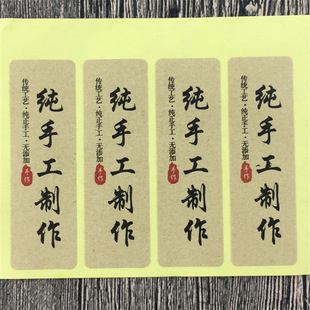 纯手工制作
传统工艺·纯正手工·无添加
手作
纯手工制作
传统工艺·纯正手工·无添加
手作
纯手工制作
传统工艺·纯正手工·无添加
手作
纯手工制作
传统工艺·纯正手工·无添加
手作